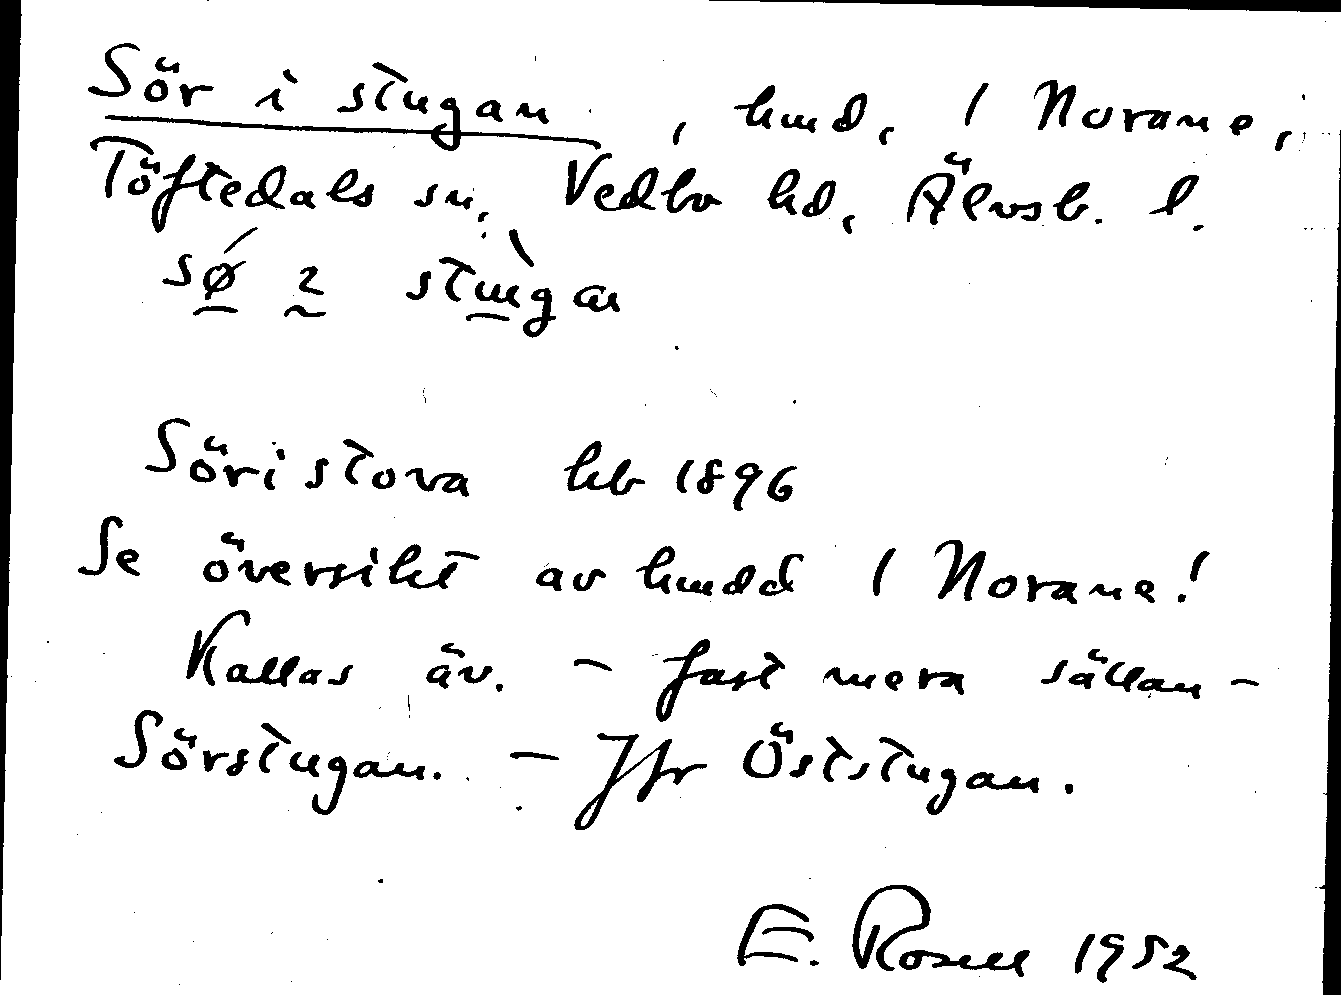 Sör i stugan, hmd, 1 Norane,
Töftedals sn, Vedbo hd, Älvsb. l.
Söristova hb 1896
Se översikt av hmdd 1 Norane!
Kallas äv. – fast mera sällan –
Sörstugan. – Jfr Öststugan.
E. Rosell 1952